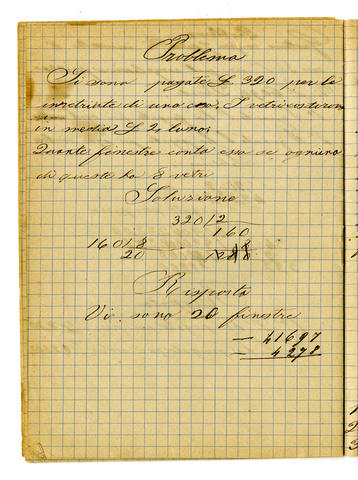 Problema
Si sono pagate £ 320 per le
invetriate di una casa. I vetri costarono
in media £ 2 l'uno;
Quante finestre conta essa se ognuna
di queste ha 8 vetri
Soluzione
320/2
160
160/8
20
Risposta
Vi sono 20 finestre
— 41697
— 4278